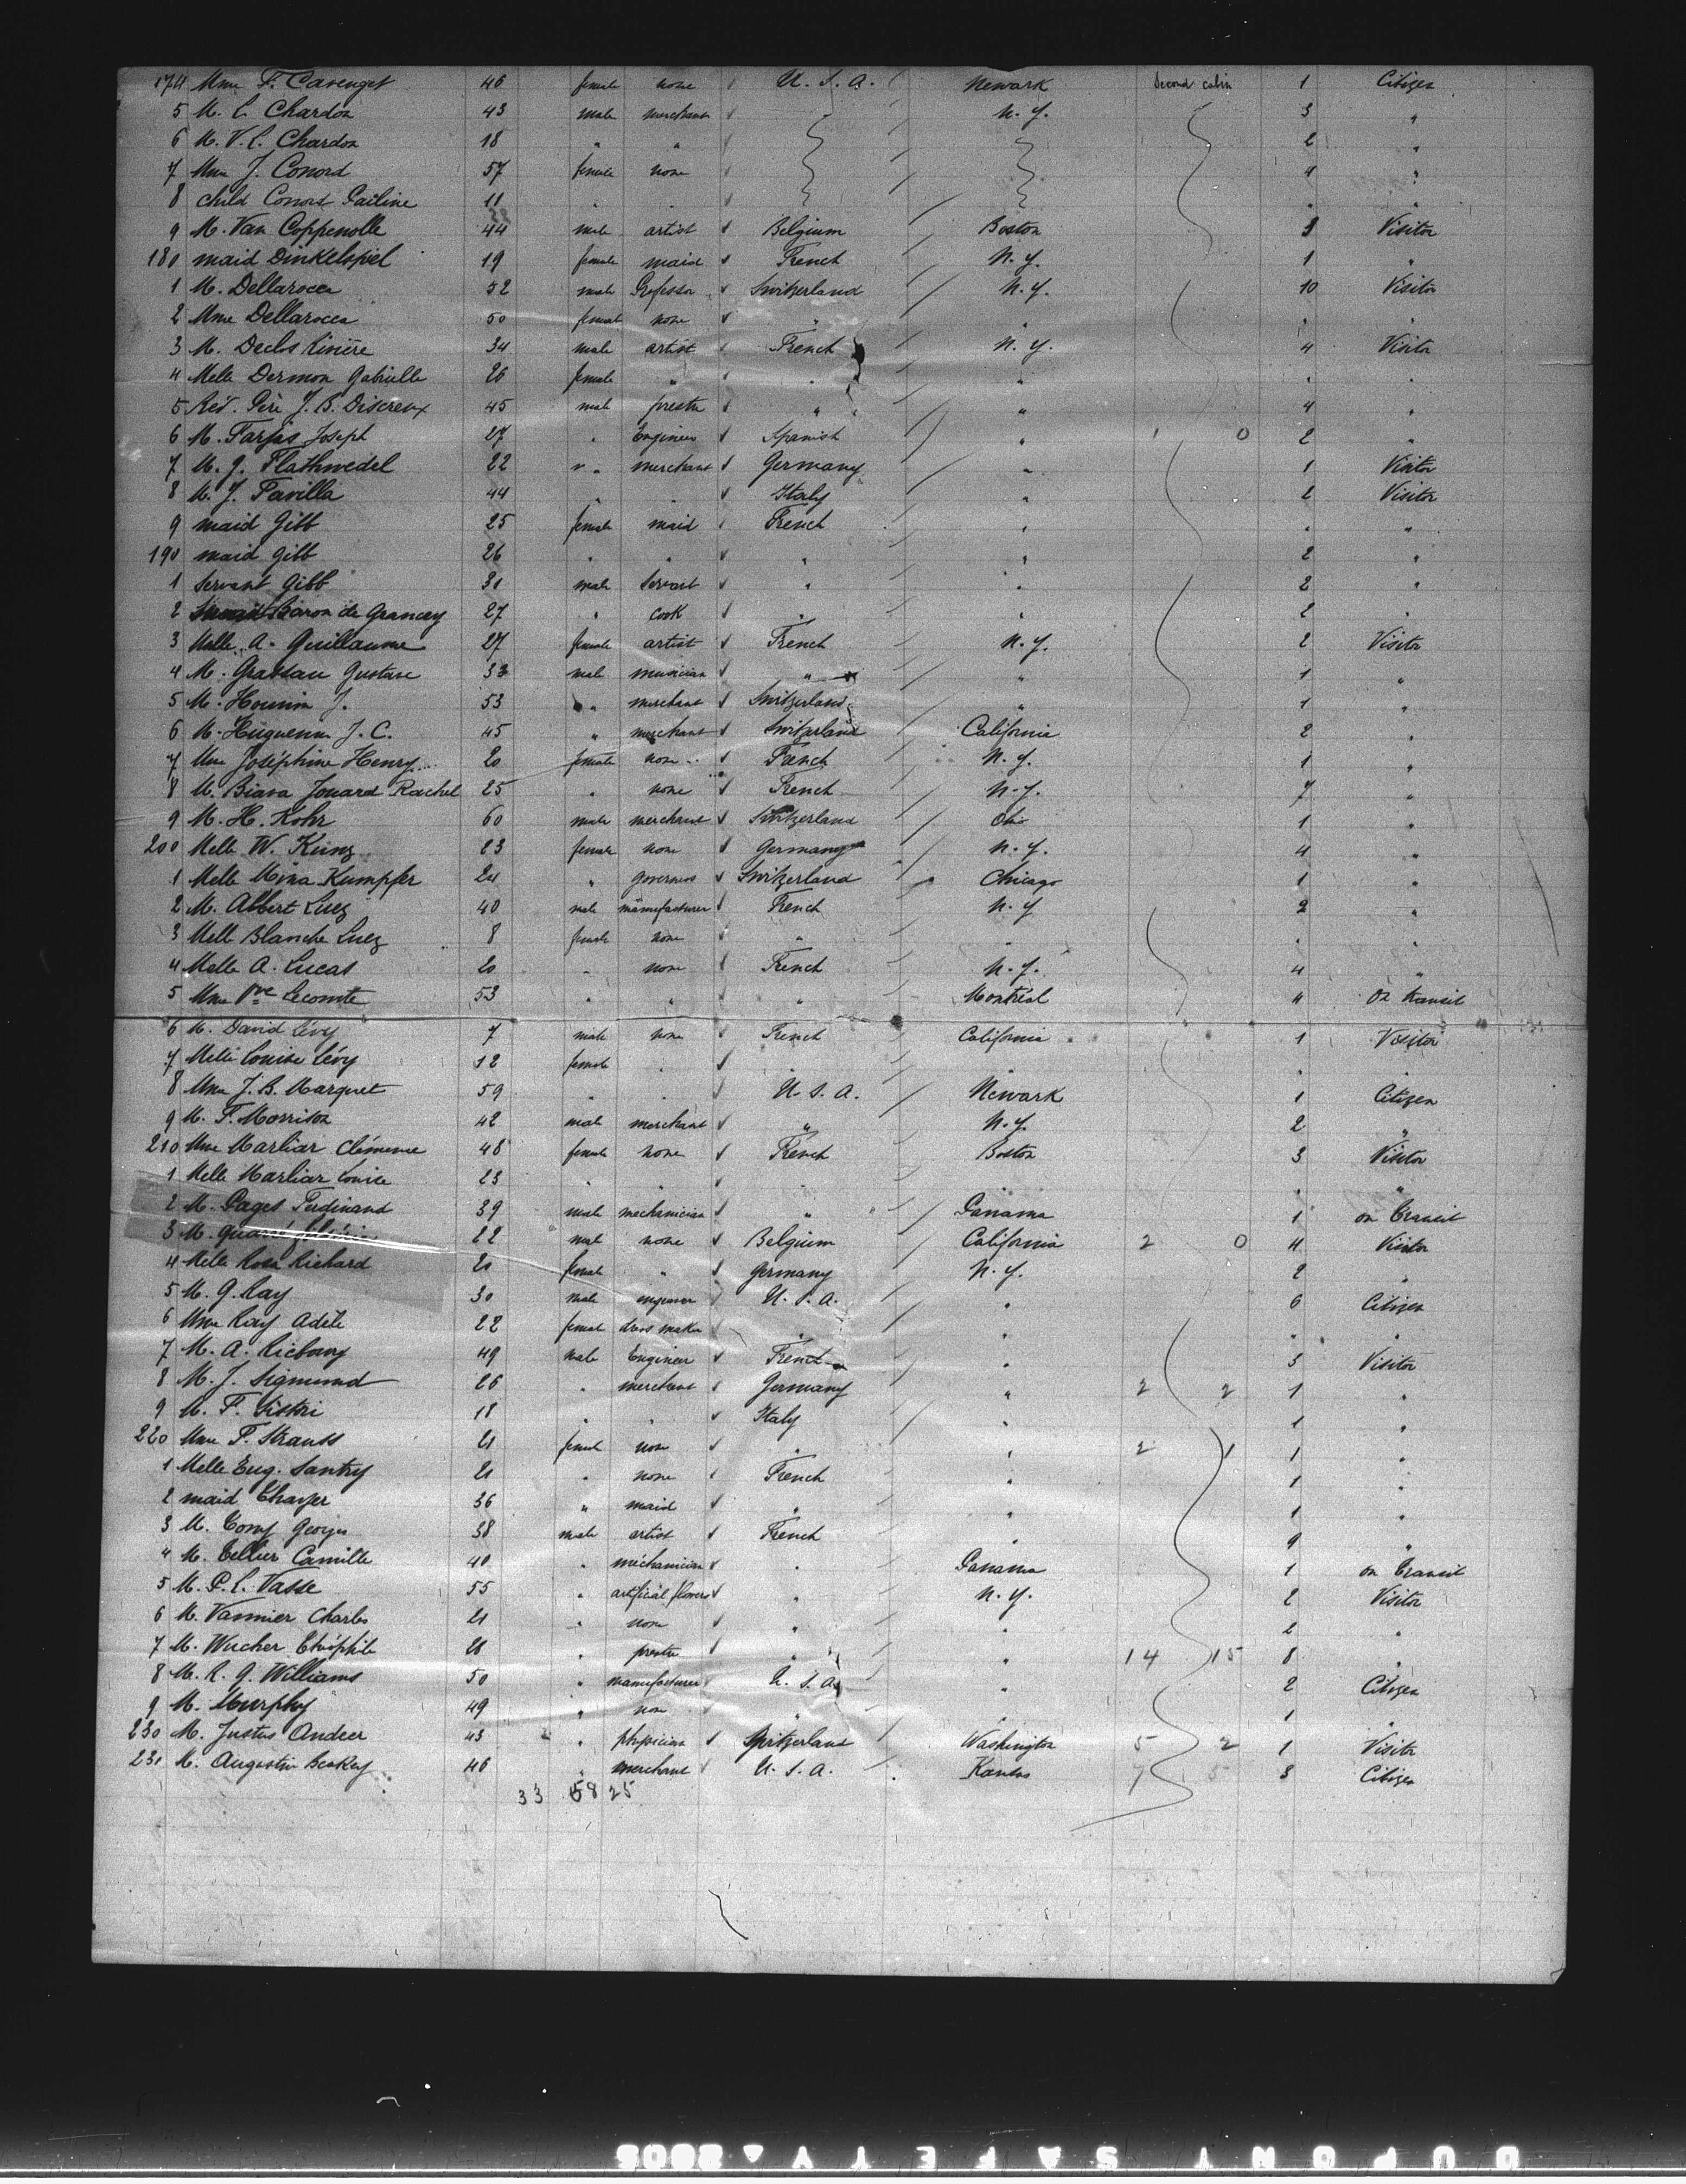 174 Mme F. Cavenget 46 female none U.S.A. Newark Second cabin 1 Citizen
5 M. E. Chardon 43 male merchant N.Y. 3 "
6 M. V. E. Chardon 18 " " 2 "
7 Mme J. Conord 57 female none 4 "
8 child Conord Pauline 11 " " " "
9 M. Van Coppenolle 44 male artist Belgium Boston 3 Visitor
180 maid Dinkelspiel 19 female maid French N.Y. 1 "
1 M. Dellarocca 52 male Professor Switzerland N.Y. 10 Visitor
2 Mme Dellarocca 50 female none " " " "
3 M. Declos Rivière 34 male artist French N.Y. 4 Visitor
4 Melle Dermon Gabrielle 26 female " " " " "
5 Rév. Père J. B. Discreux 45 male prestre " " 4 "
6 M. Farjas Joseph 27 " Engineer Spanish " 1 0 2 "
7 M. G. Flathwedel 22 " merchant Germany " 1 Visitor
8 M. J. Favilla 44 " " Italy " 2 Visitor
9 maid Gibb 25 female maid French " " "
190 maid Gibb 26 " " " " 2 "
1 Servant Gibb 31 male Servant " " 2 "
2 Baron de Grancey 27 " cook " " 2 "
3 Melle A. Guillaume 27 female artist French N.Y. 2 Visitor
4 M. Grassau Gustave 33 male musician " " 1 "
5 M. J. 53 " merchant Switzerland " 1 "
6 M. Huguenin J. C. 45 " merchant Switzerland California 2 "
7 Mme Joséphine Henry 20 female none French N.Y. 1 "
8 M. Biava Jouard Rachel 25 " none French N.Y. 7 "
9 M. H. Kohr 60 male merchant Switzerland Ohio 1 "
200 Melle W. Kunz 23 female none Germany N.Y. 4 "
1 Melle Mina Kumpfer 24 " governess Switzerland Chicago 1 "
2 M. Albert Luez 40 male manufacturer French N.Y. 2 "
3 Melle Blanche Luez 8 female none " " " "
4 Melle A. Lucas 20 " none French N.Y. 4 "
5 Mme Vve Lecomte 53 " " " Montréal 4 on transit
6 M. David Lévy 7 male none French California 1 Visitor
7 Melle Louise Lévy 12 female " " "
8 Mme J. B. Marquet 59 " " U.S.A. Newark 1 Citizen
9 M. F. Morrison 42 male merchant " N.Y. 2 "
210 Mme Marliar Clémence 48 female none French Boston 3 Visitor
1 Melle Marliar Louise 23 " " " " "
2 M. Pages Ferdinand 39 male mechanician " Panama 1 on transit
3 M. 22 male none Belgium California 2 0 4 Visitor
4 Melle Rosa Richard 20 female " Germany N.Y. 2 "
5 M. G. Ray 30 male engraver U.S.A. " 6 Citizen
6 Mme Ray Adèle 22 female dress maker " " " "
7 M. A. Riebourg 49 male Engineer French " 3 Visitor
8 M. J. Sigmund 26 " merchant Germany " 2 2 1 "
9 M. F. Sistori 18 " " Italy " 1 "
220 Mme F. Strauss 21 female none " " 2 1 1 "
1 Melle Eug. Santry 21 " none French " 1 "
2 maid Thayer 36 " maid " " 1 "
3 M. Tomy Georges 38 male artist French " 9 "
4 M. Tellier Camille 40 " mechanician " Panama 1 on transit
5 M. P. E. Vasse 55 " artificial flowers " N.Y. 2 Visitor
6 M. Vannier Charles 21 " none " " 2 "
7 M. Wucher Théophile 28 " prestre " " 14 15 8 "
8 M. R. G. Williams 50 " manufacturer U.S.A. " 2 Citizen
9 M. Murphy 49 " none " " 1 "
230 M. Justus Andeer 43 " physician Switzerland Washington 5 2 1 Visitor
231 M. Augustin 46 " merchant U.S.A. Kansas 7 5 3 Citizen
33 58 25
DUPONT SAFETY